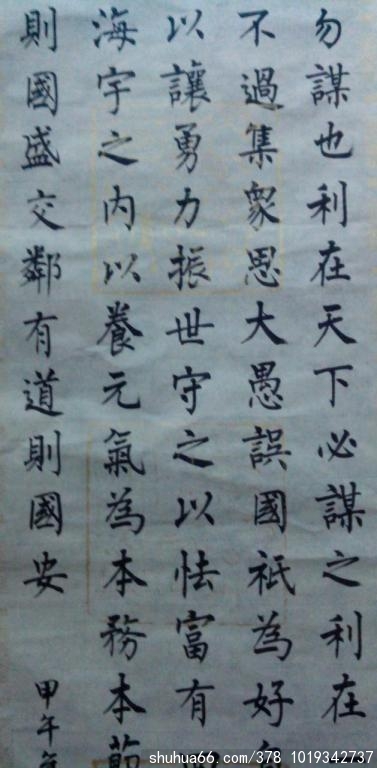 勿謀也利在天下必謀之利在
不過集衆思大愚誤國祇為好
以讓勇力振世守之以怯富有
海宇之内以養元氣為本務本節
則國盛交鄰有道則國安
甲午年
shuhua66.com/378 1019342737